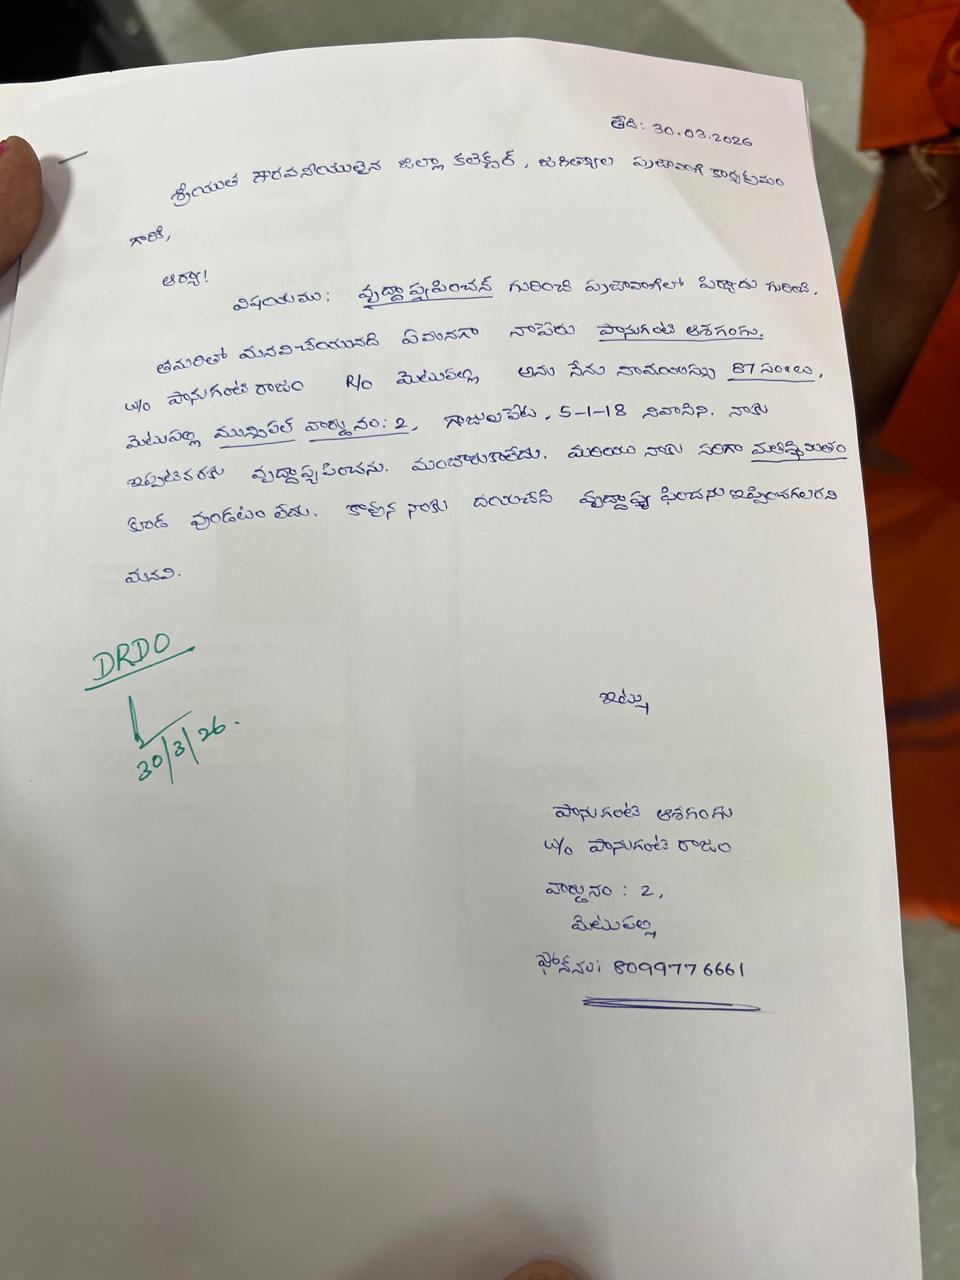 తేది: 30.03.2026
శ్రీయుత గౌరవనీయులైన జిల్లా కలెక్టర్, జగిత్యాల ప్రజావాణి కార్యక్రమం
గారికి,
ఆర్యా!
విషయము: వృద్దాప్యపించన్ గురించి ప్రజావాణిలో పిర్యాదు గురించి.
తమరితో మనవిచేయునది ఏమనగా నాపేరు పానుగంటి ఆశగంగు,
w/o పానుగంటి రాజం R/o మెటుపల్లి అను నేను నావయస్సు 87 సంలు,
మెటుపల్లి మున్సిపల్ వార్డు నం: 2, గాజులపేట, 5-1-18 నివాసిని. నాకు
ఇప్పటివరకు వృద్దాప్య పించను. మంజూరుకాలేదు. మరియు నాకు సరిగా మతిస్థిమితం
కూడ వుండటం లేదు. కావున నాకు దయచేసి వృద్దాప్య ఫించను ఇప్పించగలరని
మనవి.
DRDO
30/3/26.
ఇట్లు
పానుగంటి ఆశగంగు
w/o పానుగంటి రాజం
వార్డునం : 2,
మెటుపల్లి
ఫోన్‌నం: 8099776661